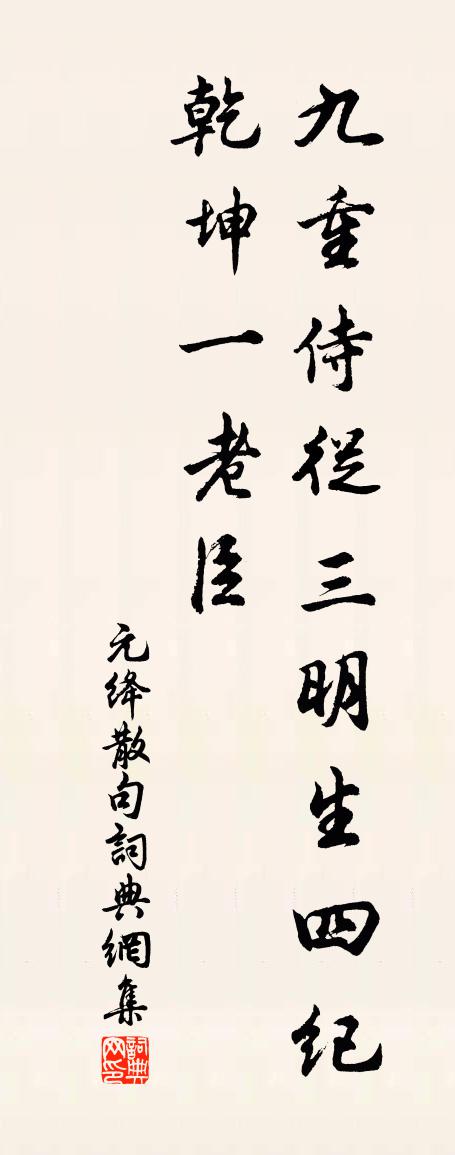 九重侍從三明生四紀
乾坤一老臣
元绛散句詞典網集
詞典网印